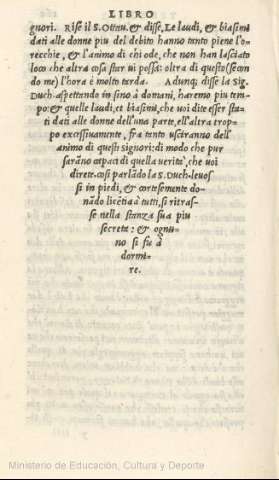 LIBRO
gnori. Rise il S. Ottau. & disse, Le laudi, & biasimi
dati alle donne piu del debito hanno tanto piene l'o
recchie, & l'animo di chi ode, che non han lasciato
loco che altra cosa star ui possa: oltra di questo (secon
do me) l'hora è molto tarda. Adunq; disse la Sig.
Duch. aspettando in sino à domani, haremo piu tem
po: & quelle laudi, et biasimi, che uoi dite esser sta
ti dati alle donne dell'una parte, ell'altra trop
po excessiuamente, fra tanto usciranno dell'
animo di questi Signori: di modo che pur
sarāno capaci di quella uerita', che uoi
direte. cosi parlādo la S. Duch. leuos
si in piedi, & cortesemente do-
nādo licētia à tutti, si ritras-
se nella stanza sua piu
secreta: & ogniu-
no si fu à
dormi-
re.
Ministerio de Educación, Cultura y Deporte